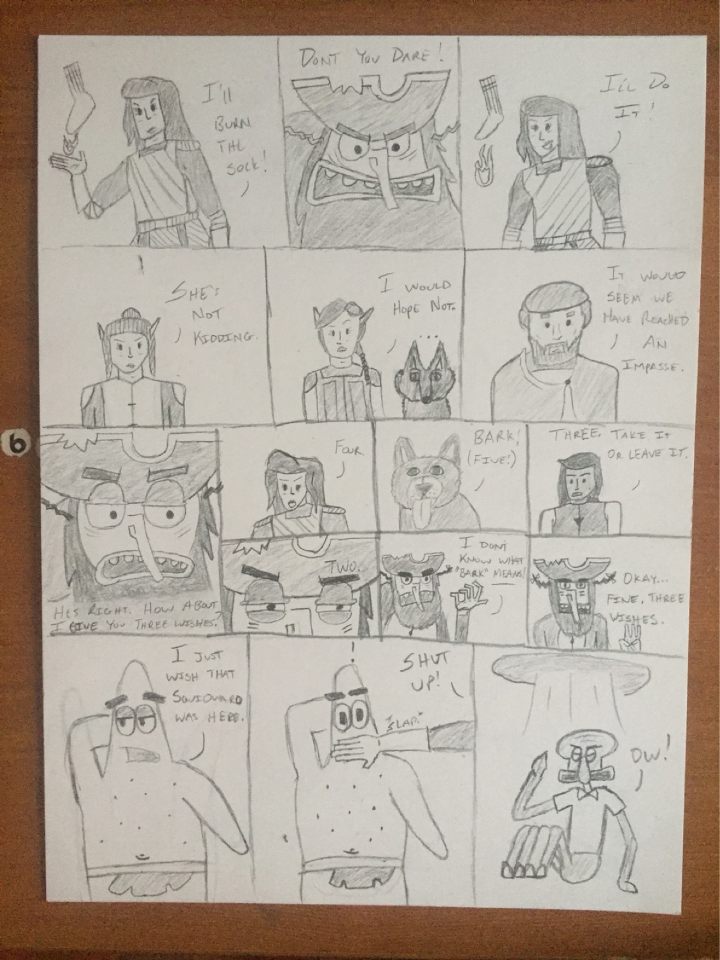 I'll
BURN
THE
SOCK!
DONT YOU DARE!
I'LL DO
IT!
SHE'S
NOT
KIDDING.
I WOULD
HOPE NOT.
...
IT WOULD
SEEM WE
HAVE REACHED
AN
IMPASSE.
6
HE'S RIGHT. HOW ABOUT
I GIVE YOU THREE WISHES.
FOUR
BARK!
(FIVE!)
THREE. TAKE IT
OR LEAVE IT.
TWO.
I DONT
KNOW WHAT
"BARK" MEANS!
OKAY...
FINE, THREE
WISHES.
I JUST
WISH THAT
SQUIDWARD
WAS HERE.
SHUT
UP!
"SLAP."
OW!